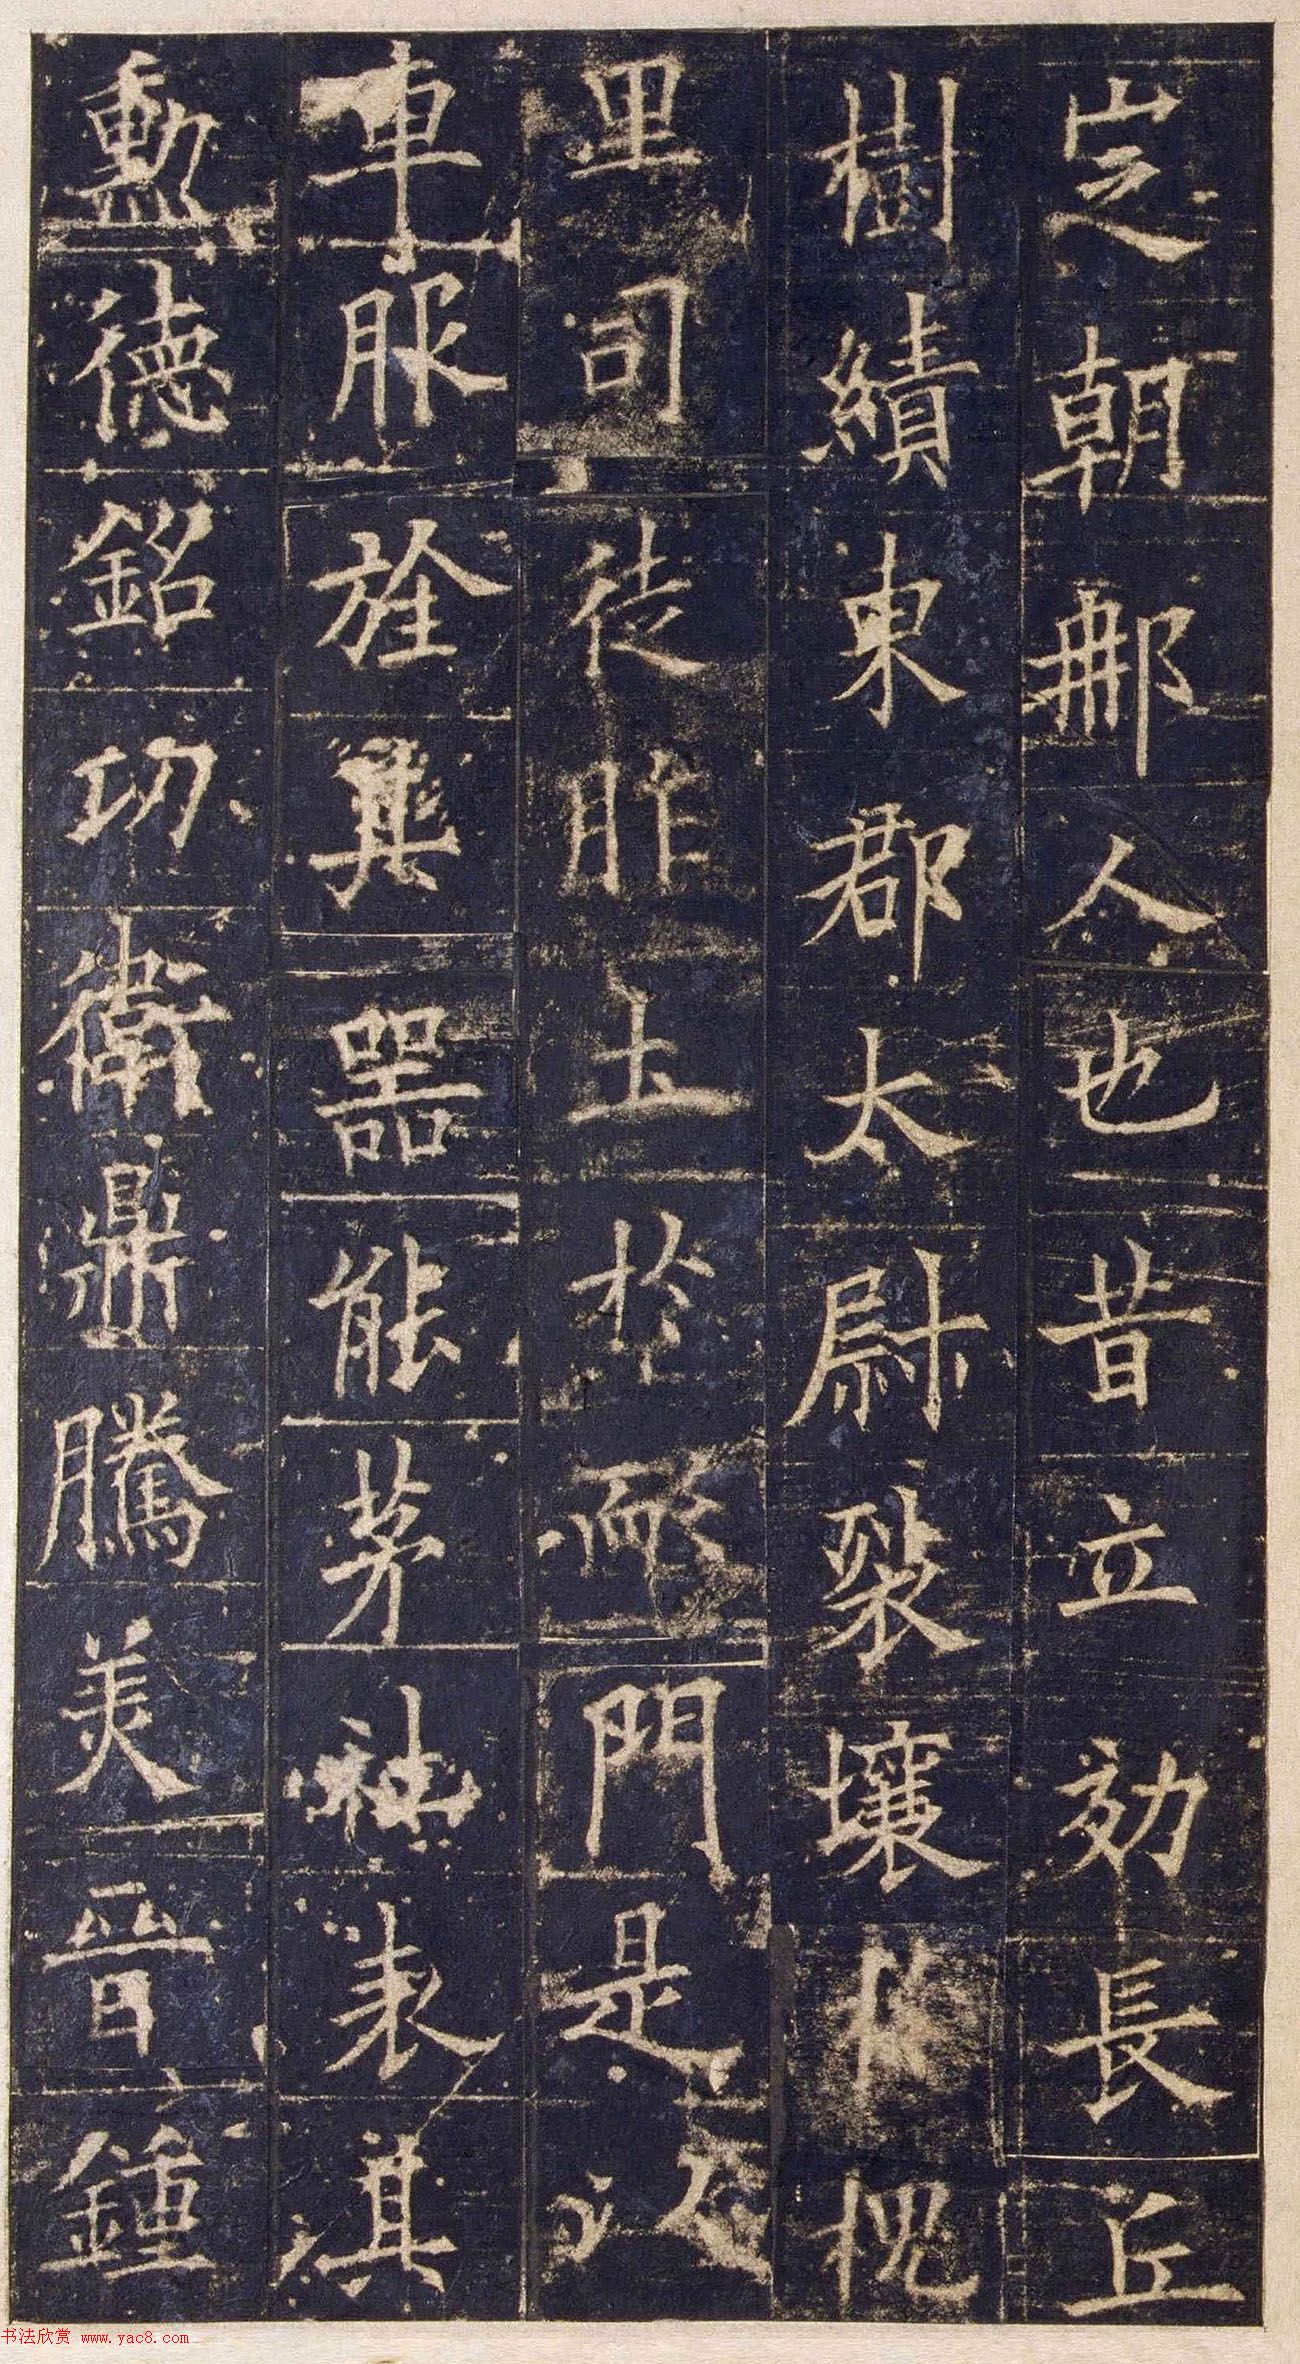 定朝那人也昔立効長丘
樹績東郡太尉裂壤於槐
里司徒胙土於耏門是以
車服旌其器能茅社表其
勲徳銘功衛鼎騰美晉鍾
书法欣赏 www.yac8.com